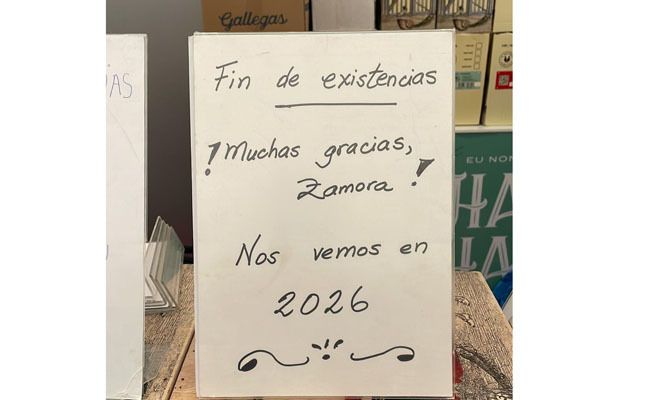 Gallegas
Fin de existencias
!Muchas gracias,
Zamora!
Nos vemos en
2026
EU NON